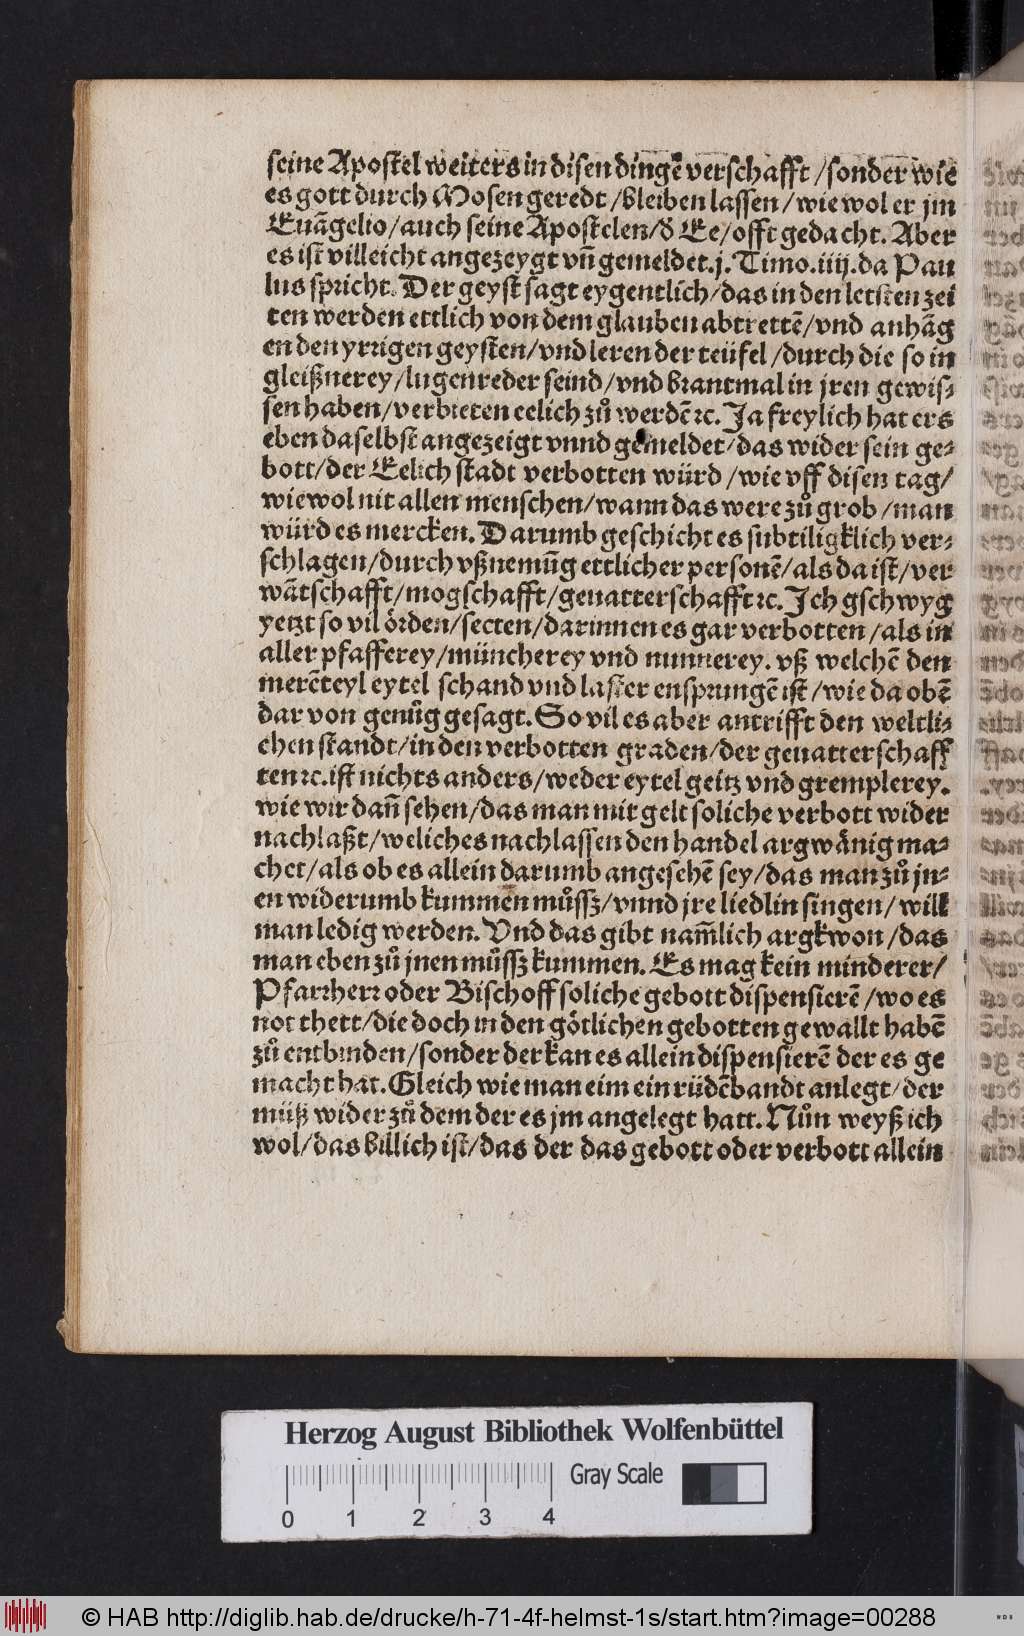 seine Apostel weiters in disen dingē verschafft / sonder wie
es gott durch Mosen geredt / bleiben lassen / wie wol er jm
Euāgelio / auch seine Apostelen / d̕ Ee / offt gedacht. Aber
es ist villeicht angezeygt vn̄ gemeldet. j. Timo. iiij. da Pau
lus spricht. Der geyst sagt eygentlich / das in den letsten zei
ten werden ettlich von dem glauben abtrettē / vnd anhāg
en den yrrigen geysten / vnd leren der teüfel / durch die so in
gleißnerey / lugenreder seind / vnd brantmal in jren gewis⸗
sen haben / verbieten eelich zů werdē ꝛc. Ja freylich hat ers
eben daselbst angezeigt vnnd gemeldet / das wider sein ge⸗
bott / der Eelich stadt verbotten würd / wie vff disen tag /
wiewol nit allen menschen / wann das were zů grob / man
würd es mercken. Darumb geschicht es subtiligklich ver⸗
schlagen / durch vßnemūg ettlicher personē / als da ist / ver
wātschafft / mogschafft / geuatterschafft ꝛc. Jch gschwyg
yetzt so vil örden / secten / darinnen es gar verbotten / als in
aller pfafferey / müncherey vnd nunnerey. vß welchē den
merēteyl eytel schand vnd laster ensprungē ist / wie da obē
dar von genůg gesagt. So vil es aber antrifft den weltli⸗
chen standt / in den verbotten graden / der geuatterschaff
ten ꝛc. ist nichts anders / weder eytel geitz vnd gremplerey.
wie wir dan̄ sehen / das man mit gelt soliche verbott wider
nachlaßt / weliches nachlassen den handel argwänig ma⸗
chet / als ob es allein darumb angesehē sey / das man zů jn⸗
en widerumb kummen můssz / vnnd jre liedlin singen / will
man ledig werden. Vnd das gibt nam̄lich argkwon / das
man eben zů jnen můssz kummen. Es mag kein minderer /
Pfarrherr oder Bischoff soliche gebott dispensierē / wo es
not thett / die doch in den götlichen gebotten gewallt habē
zů entbinden / sonder der kan es allein dispensierē der es ge
macht hat. Gleich wie man eim ein rüdēbandt anlegt / der
müß wider zů dem der es jm angelegt hatt. Nůn weyß ich
wol / das billich ist / das der das gebott oder verbott allein
Herzog August Bibliothek Wolfenbüttel
Gray Scale
0 1 2 3 4
© HAB http://diglib.hab.de/drucke/h-71-4f-helmst-1s/start.htm?image=00288